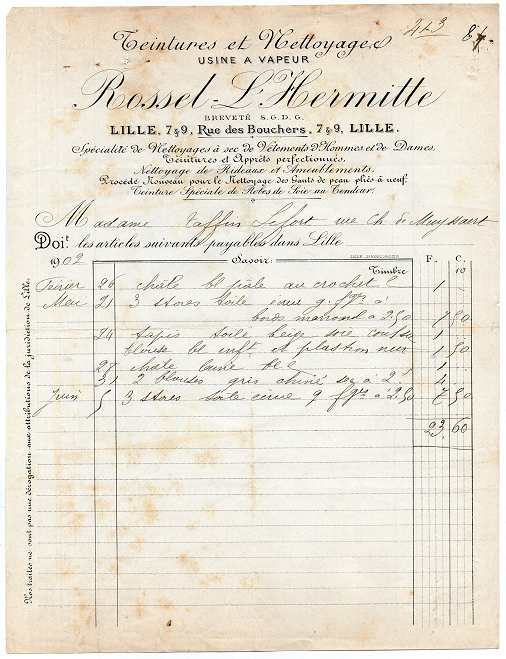 243 84
Teintures et Nettoyages
USINE A VAPEUR
Rossel-L'Hermitte
BREVETÉ S.G.D.G.
LILLE. 7&9, Rue des Bouchers, 7&9, LILLE.
Spécialité de Nettoyages à sec de Vêtements d'Hommes et de Dames.
Teintures et Apprêts perfectionnés.
Nettoyage de Rideaux et Ameublements.
Procédé Nouveau pour le Nettoyage des Gants de peau pliés à neuf.
Teinture Spéciale de Robes de Soie au Tendeur.
Madame Taffin Lefort rue Ch. de Muyssaert
Doit les articles suivants payables dans Lille
1902 Savoir: F. C.
Timbre 10
Février 26 châle bl pâle au crochet 1 -
Mai 21 3 stores toile écrue g. fges à
bords marrons à 2.50 7 50
24 tapis toile beige 1
blouse bl et plastron noir 1.50
28 châle laine bl 1
31 2 blouses gris chiné à 2f 4
Juin 5 3 stores toile écrue g fges à 2.50 7 50
23.60
Nos traites ne sont pas une dérogation aux attributions de la juridiction de Lille.